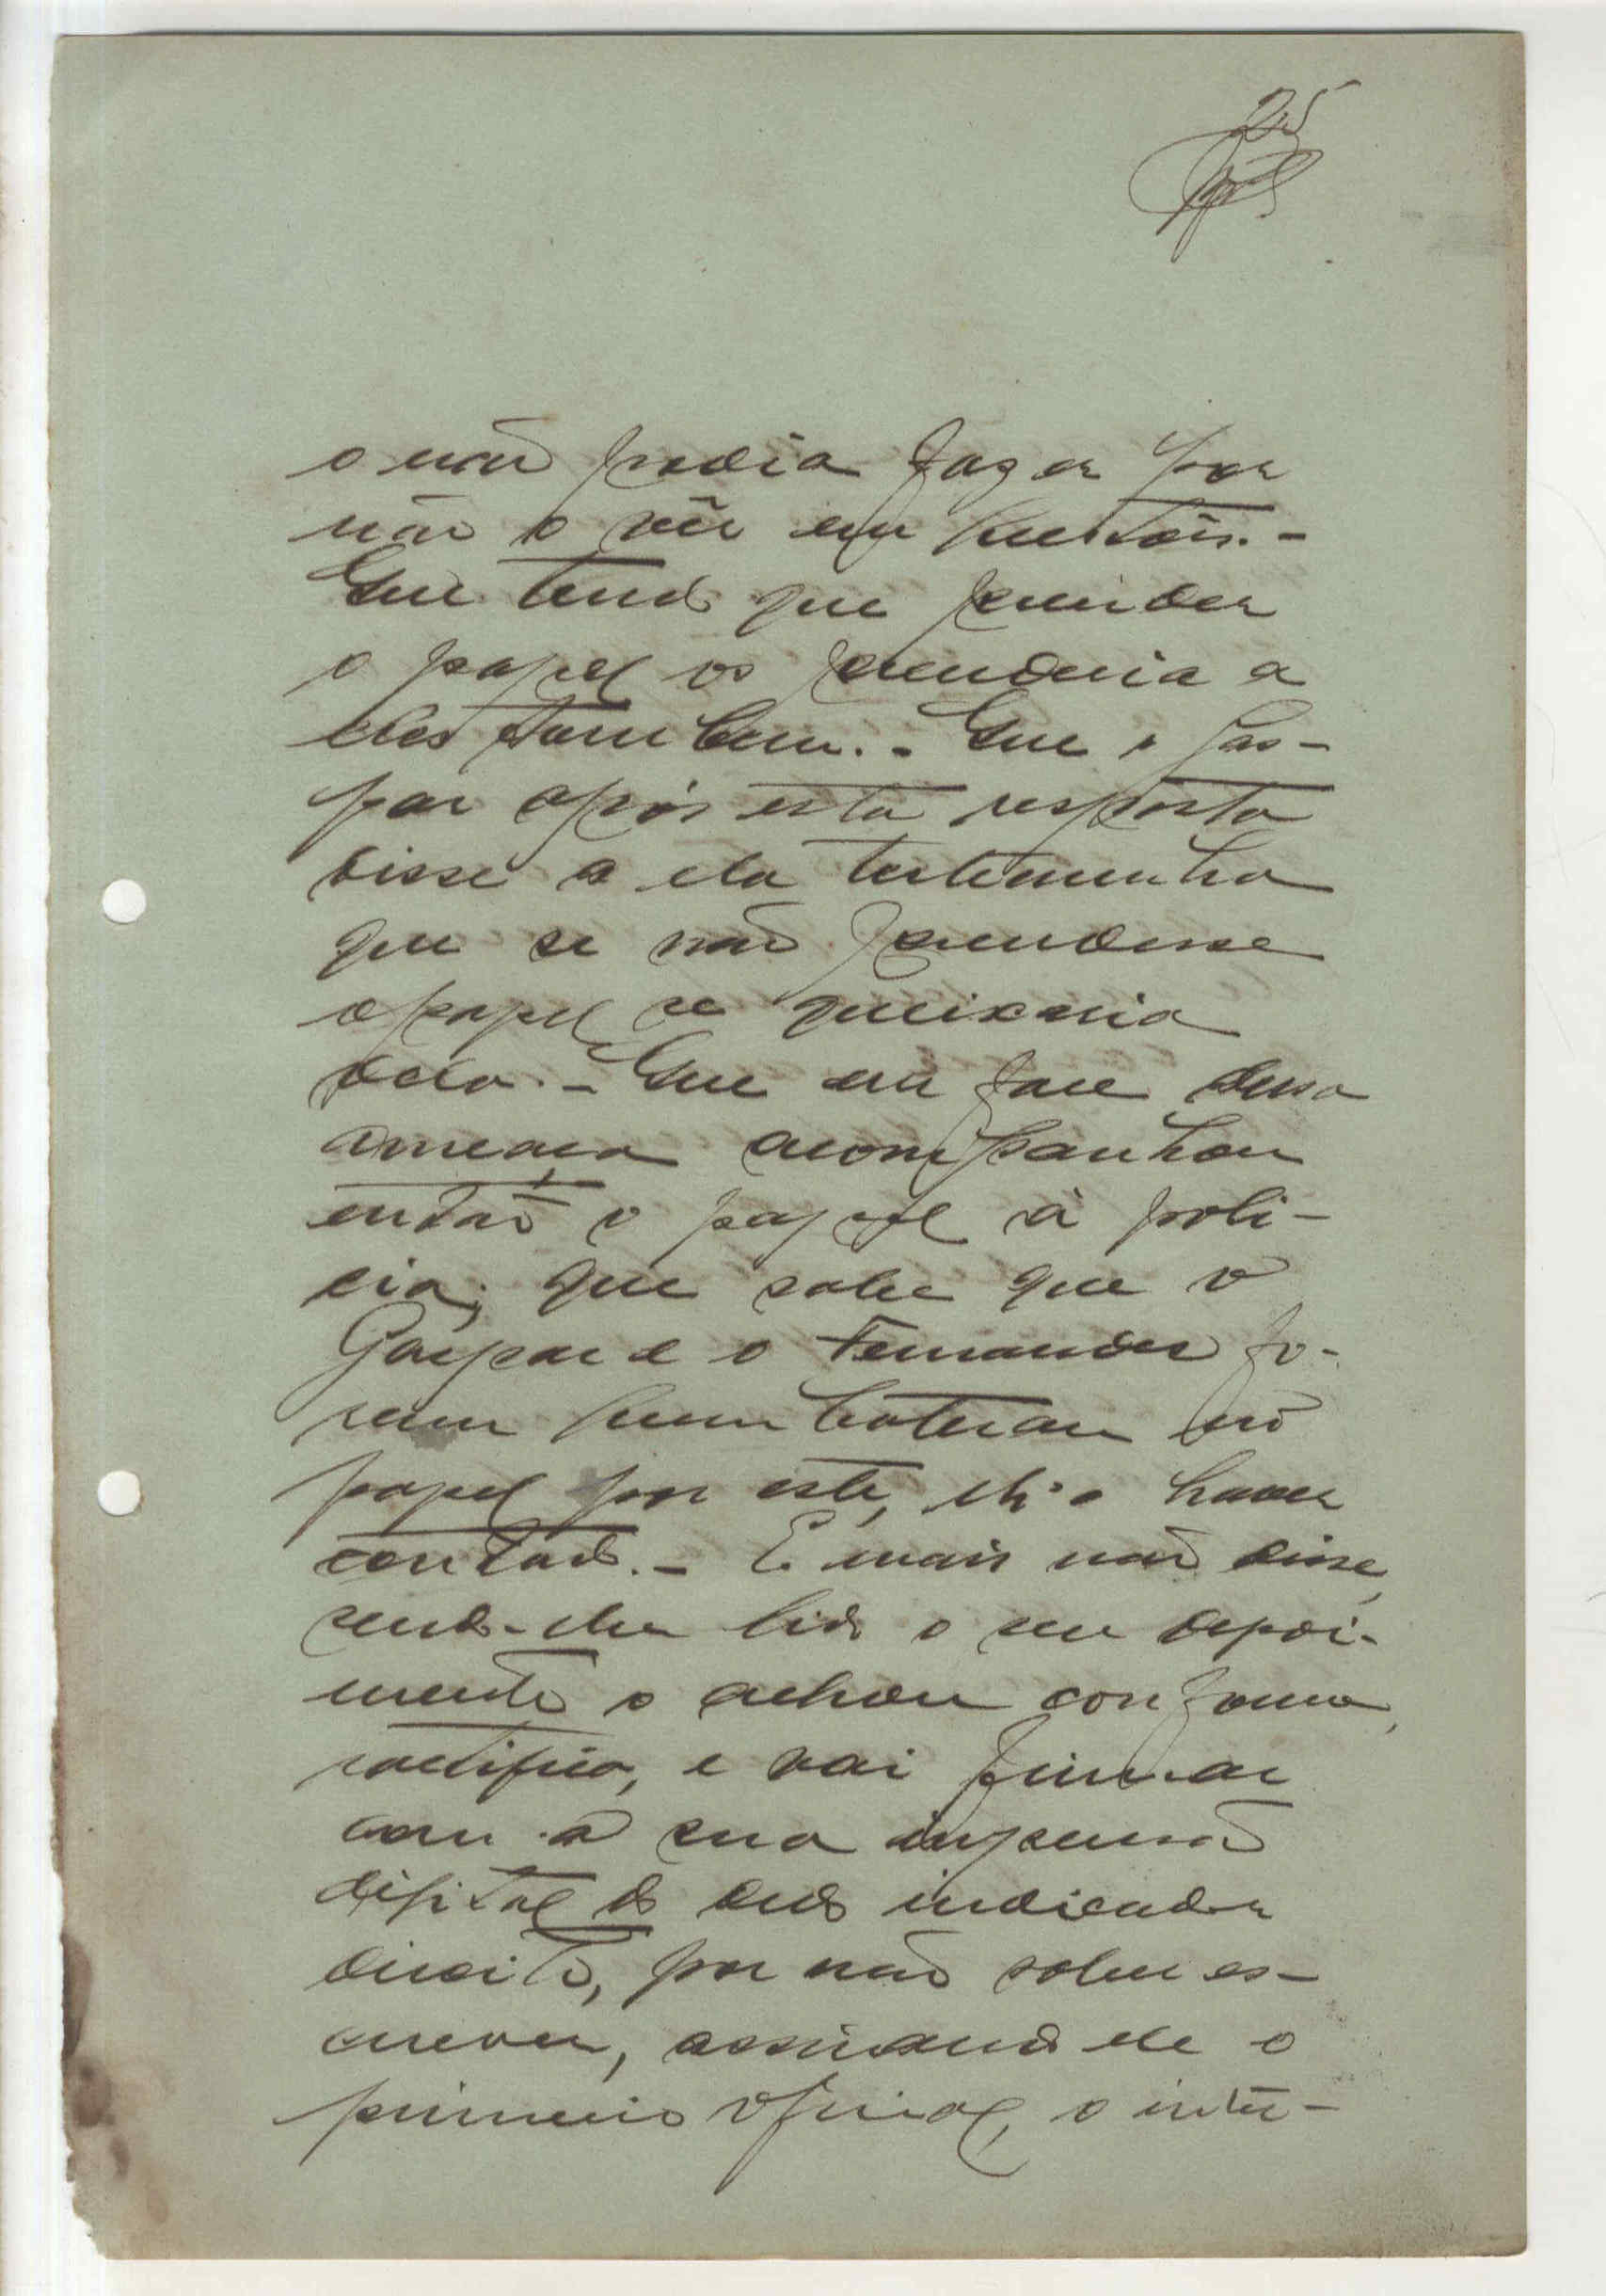 25
o não podia fazer por
não o vêr em
Que tendo que prender
o papel os prenderia a
eles tambem. - Que o Gas-
par após esta resposta
disse a ela testemunha
que se não prendesse
o papel se queixaria
dela. - Que em face dessa
ameaça acompanhou
então o papel à poli-
cia; que sabe que o
Gaspar e o Fernandes fo-
ram quem bateram no
papel por este, lh'o haver
contado. - E mais não disse,
sendo-lhe lido o seu depoi-
mento o achou conforme,
ractifica, e vai firmar
com a sua impressão
digital do dedo indicador
direito, por não saber es-
crever, assinando ele o
primeiro oficial, o intér-